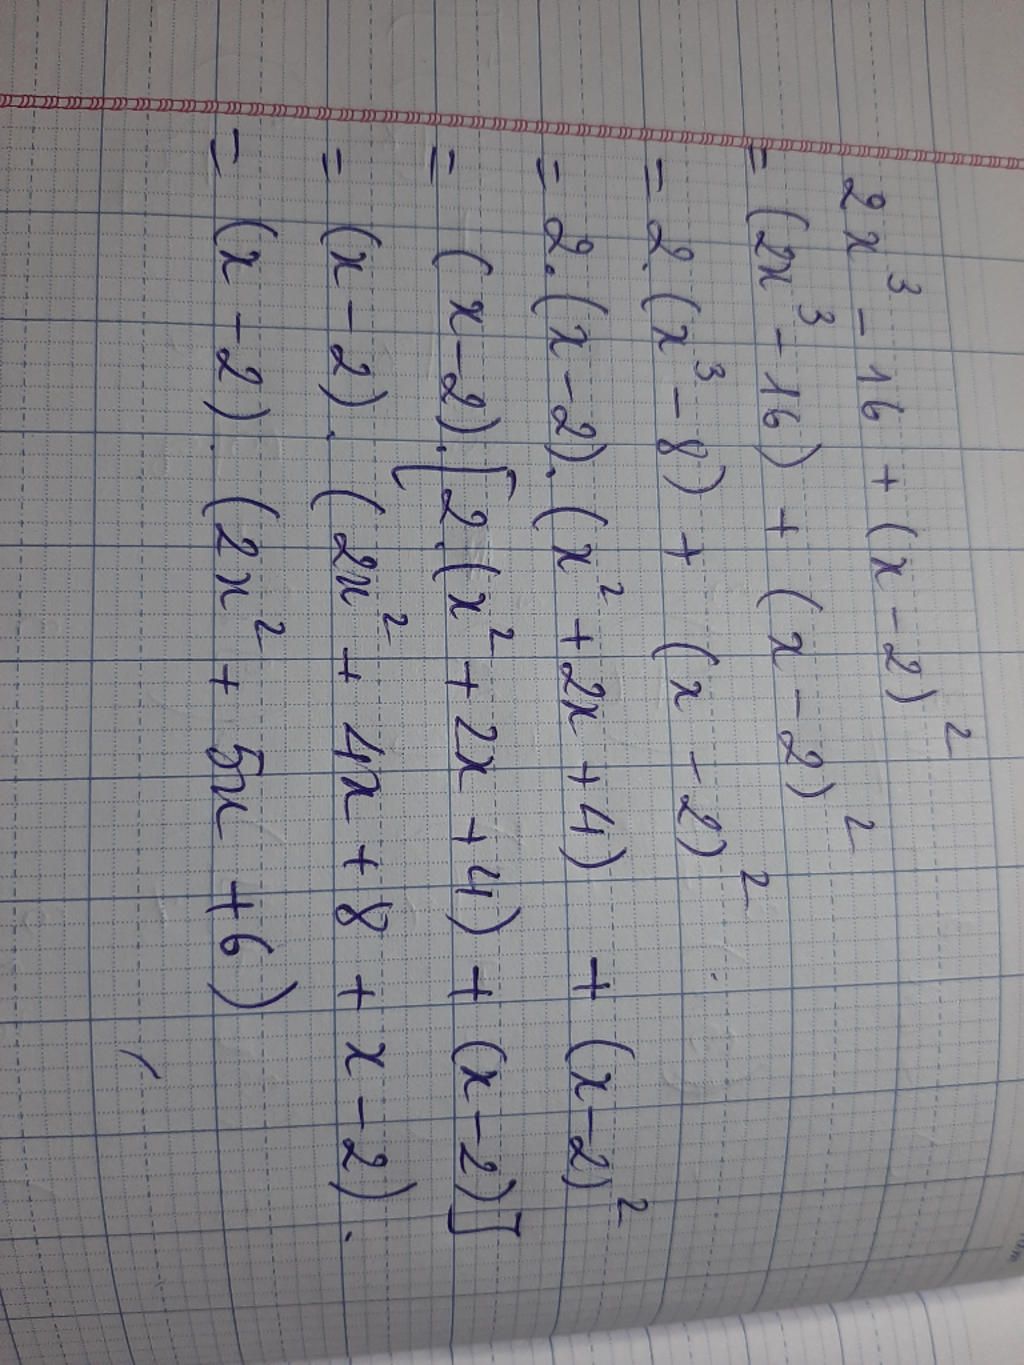 2x³ - 16 + (x - 2)²
= (2x³ - 16) + (x - 2)²
= 2.(x³ - 8) + (x - 2)²
= 2.(x - 2).(x² + 2x + 4) + (x - 2)²
= (x - 2).[2.(x² + 2x + 4) + (x - 2)]
= (x - 2).(2x² + 4x + 8 + x - 2).
= (x - 2).(2x² + 5x + 6)